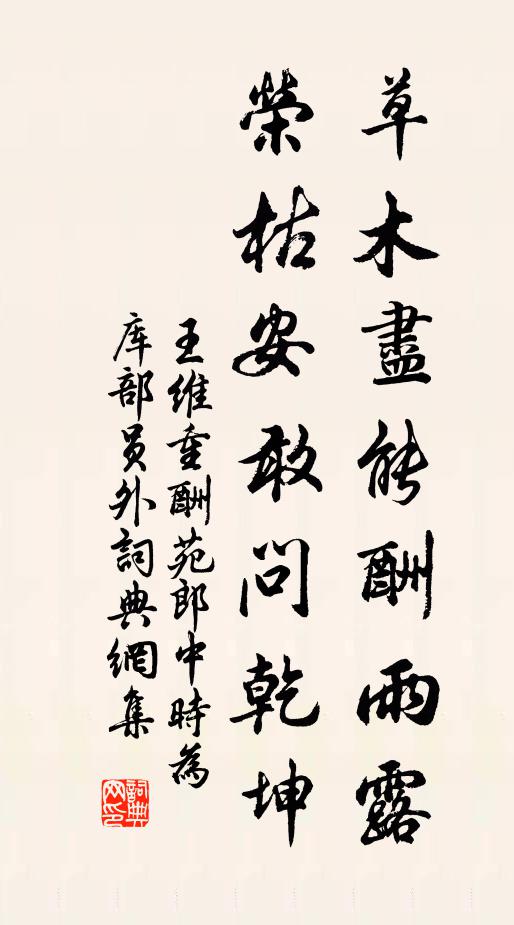 草木盡能酬雨露
榮枯安敢問乾坤
王維重酬苑郎中時為
库部員外詞典網集
詞典
网印